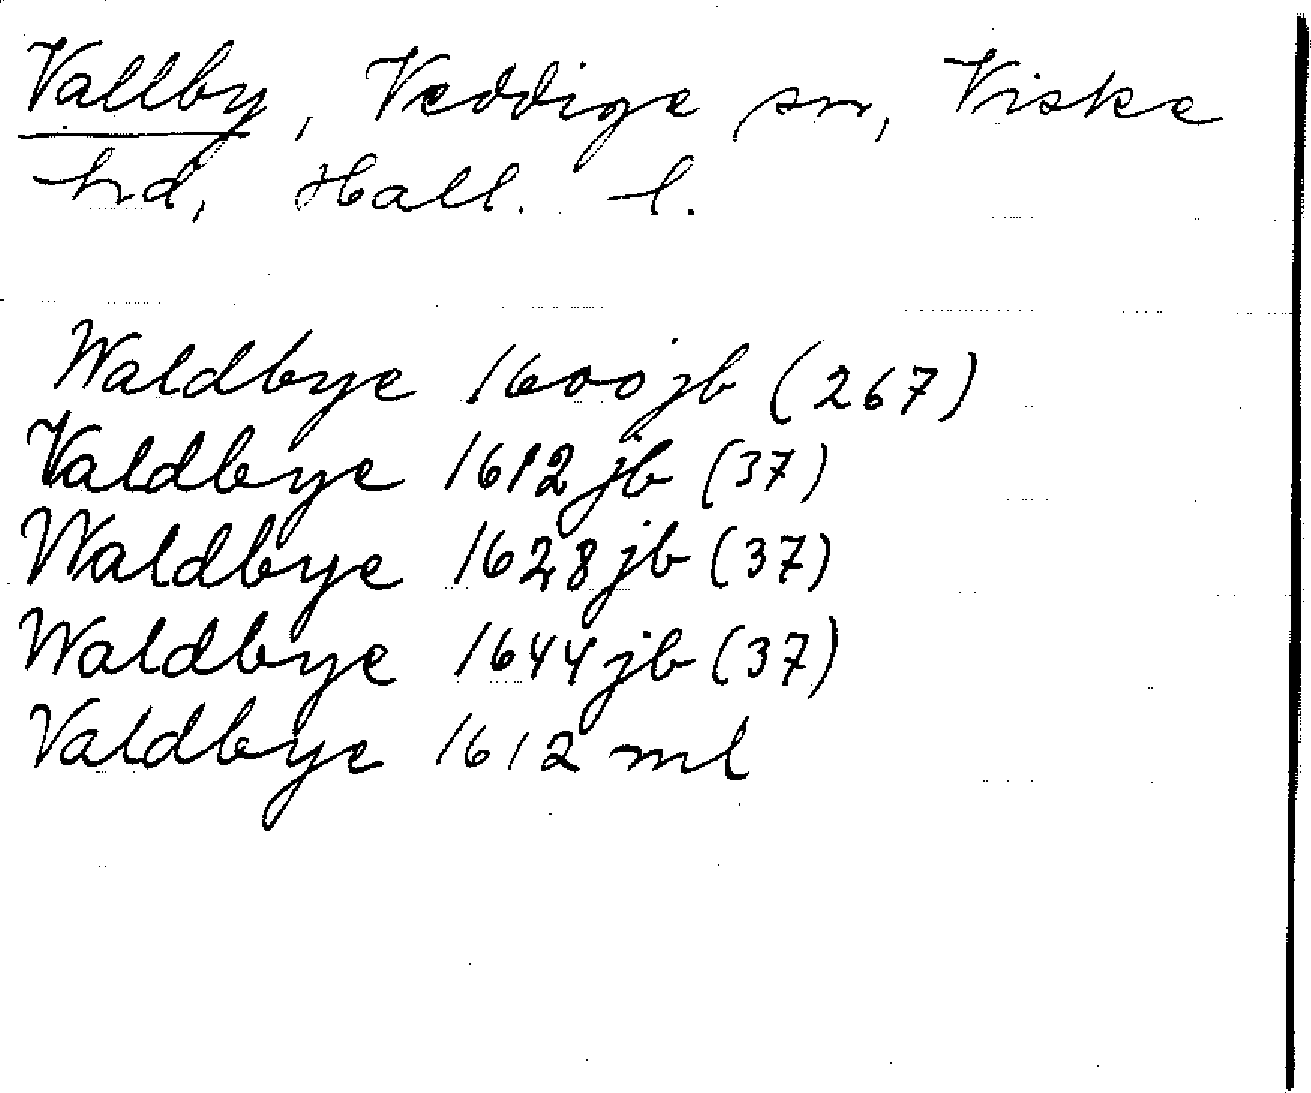 Vallby, Veddige sn, Viske
hd, Hall. l.
Waldbye 1600 jb (267)
Valdbye 1612 jb (37)
Waldbye 1628 jb (37)
Waldbye 1644 jb (37)
Valdbye 1612 ml